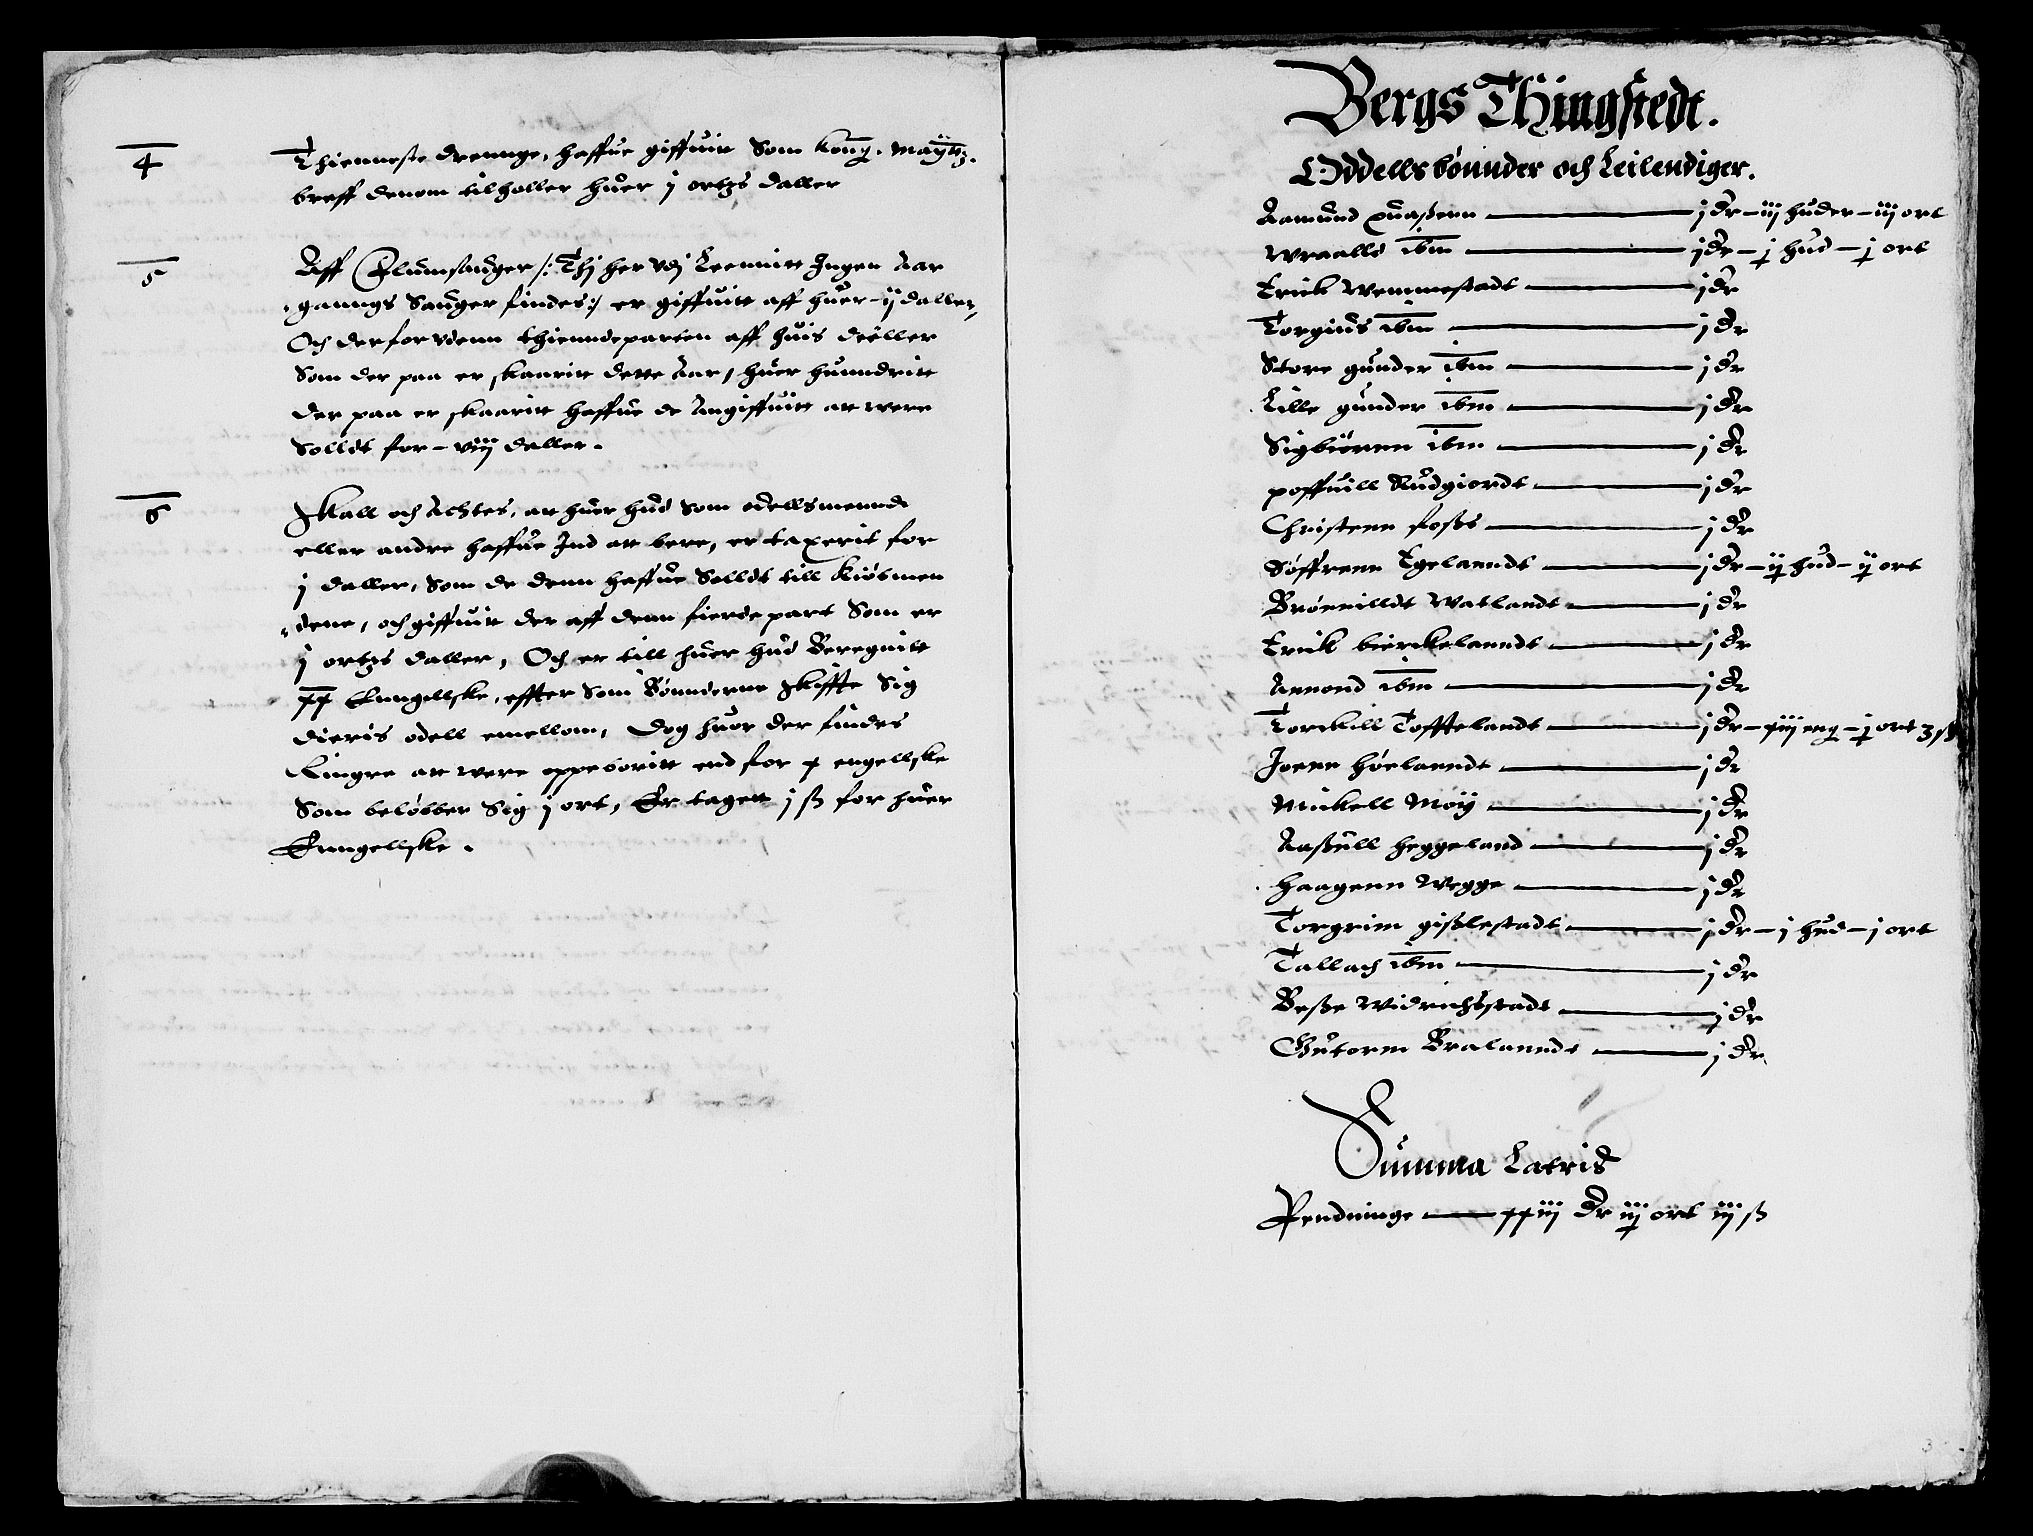 4
Thienneste drennge, haffue giffuit Som konng. Maÿtz.
breff denom tilholler huer j ortzs daller
5
Aff Flumsauger /: Thj her vdj Leennitt Ingen Aar
ganngs Sauger findes :/ er giffuitt aff huer - ij daller,
Och derforvdenn thienndeparten aff huis deeller
Som der paa er skaaritt dette Aar, huer hunndritt
der paa er skaaritt haffue de Angiffuitt at were
Solldt for - viij daller.
6
Skall och Achtes, at huer hud Som odellsmennd
eller andre haffue Ind at bere, er taxerit for
j daller, Som de denn haffue Solldt till Kiøbmen
dene, och giffuit der aff denn fierde part Som er
j ortzs daller, Och er till huer hud Beregnitt
xx Enngellske, effter Som Bønnderne Skiffte Sig
dieris odell emellom, Dog huor der findes
Ringre at were oppeboritt end for x engellske
Som beløbber Sig j ort, Er tagett j ß for huer
Enngellske.
Bergs Thingstedt.
Oddells bønnder och Leilendiger.
Aamund quaßenn — j dr - iij huder - iij ort
Wraalld ibm — j dr - j hud - j ort
Erick Wemmestadt — j dr
Torgius ibm — j dr
Store gunder ibm — j dr
Lille gunder ibm — j dr
Sigbiørnn ibm — j dr
poffuill Rudgiordt — j dr
Christenn foßs — j dr
Søffrenn Egelanndt — j dr - ij hud - ij ort
Brønnilldt Watlandt — j dr
Erick bierckelanndt — j dr
Annond ibm — j dr
Torckill Tofftelandt — j dr - xiij eng - j ort 3 ß
Joenn høelanndt — j dr
Mickell Moÿ — j dr
Aaßull heggeland — j dr
haagenn Wegge — j dr
Torgrim gißlestadt — j dr - j hud - j ort
Tallach ibm — j dr
Beße Widrichstadt — j dr
Guttorm Bralanndt — j dr
Summa Latris
Pendninge — xxiij dr iij ort iij ß
3